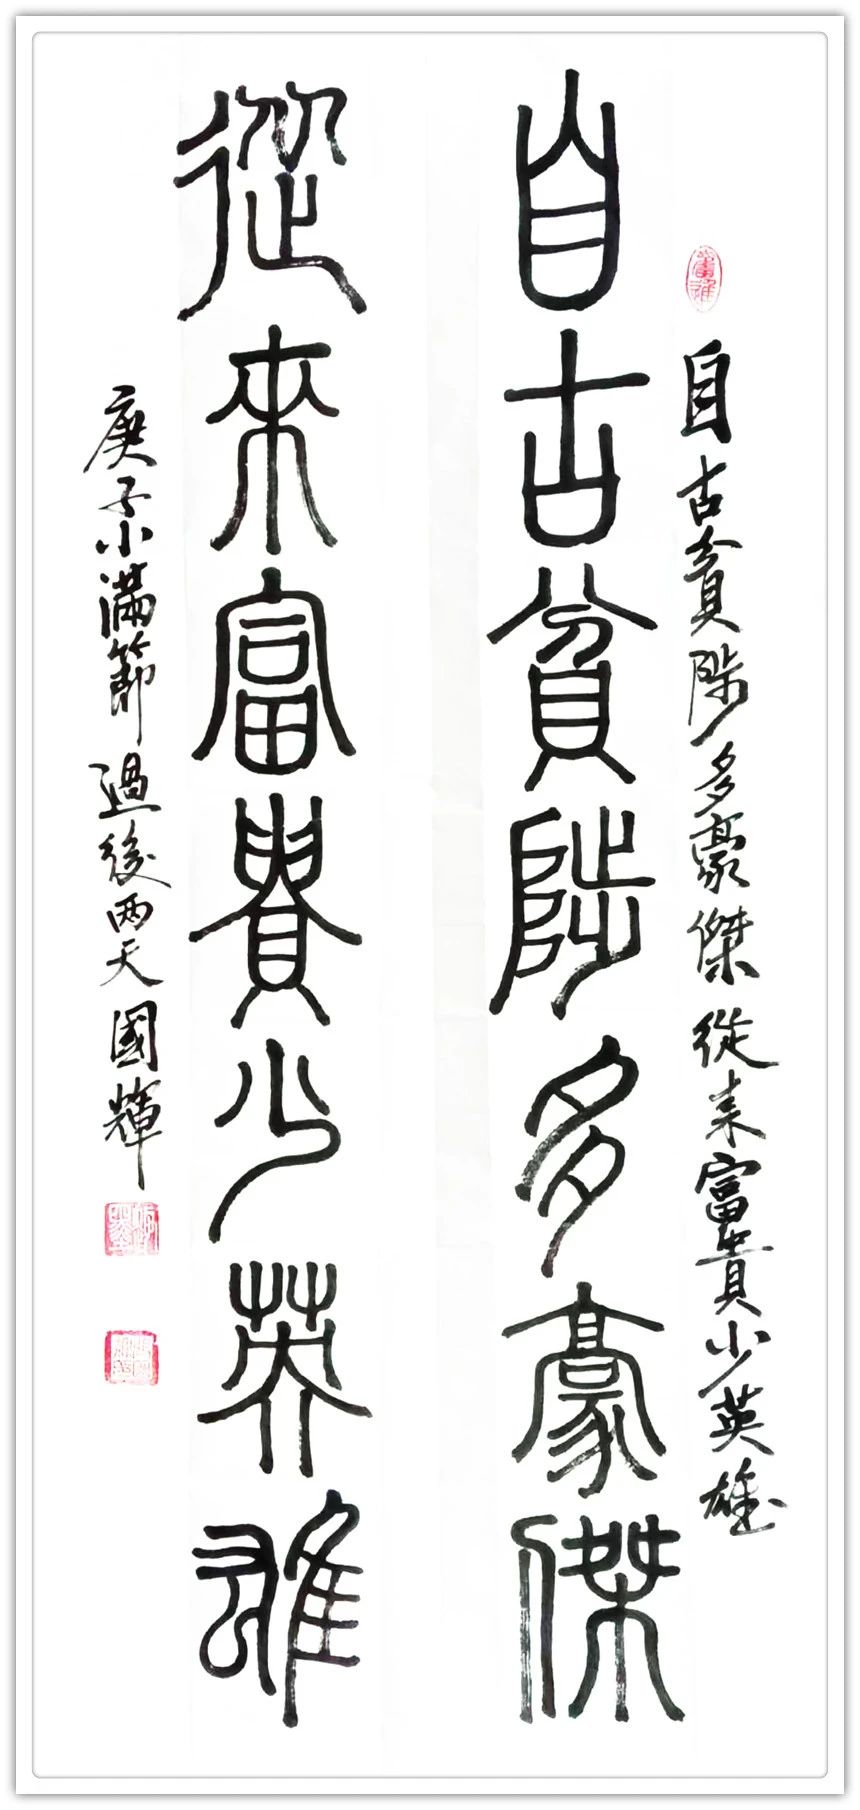 自古貧陟多豪傑從来富貴少英雄
自古貧陟多豪傑
從來富貴少英雄
庚子小滿節過後两天國輝